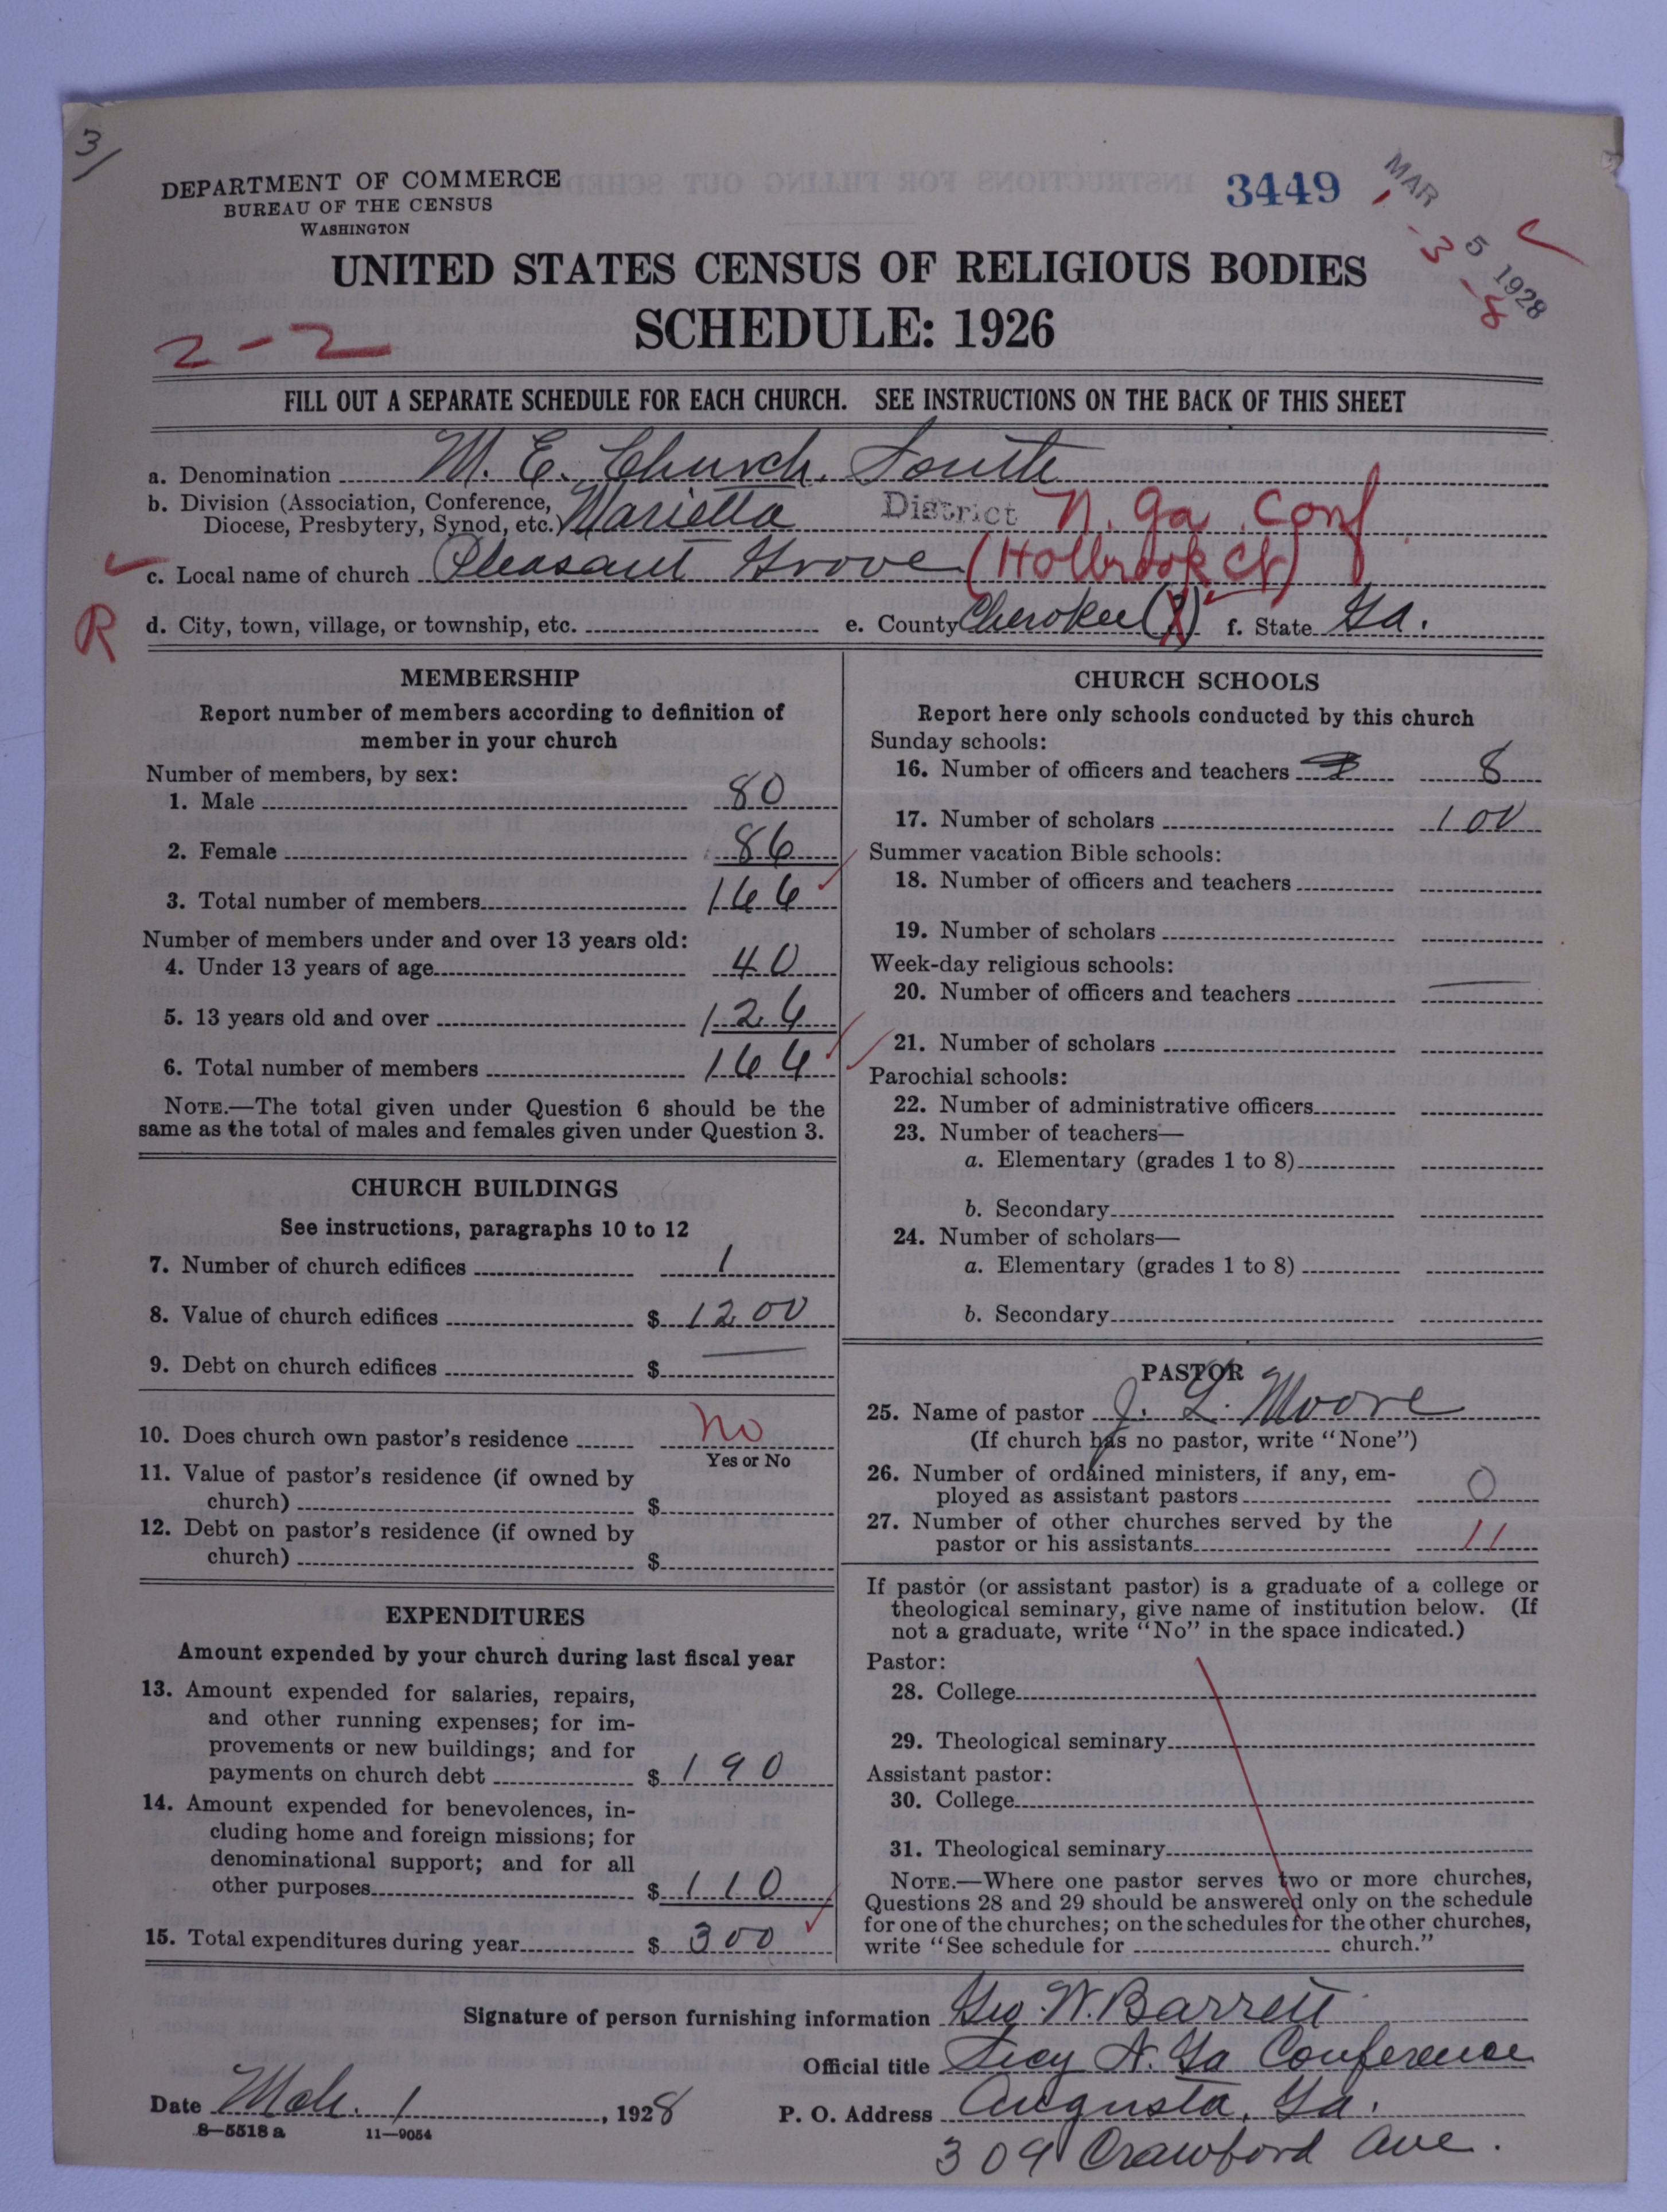 3/
DEPARTMENT OF COMMERCE
BUREAU OF THE CENSUS
WASHINGTON
3449
MAR 5 1928
-3
-8
UNITED STATES CENSUS OF RELIGIOUS BODIES
SCHEDULE: 1926
2-2
FILL OUT A SEPARATE SCHEDULE FOR EACH CHURCH. SEE INSTRUCTIONS ON THE BACK OF THIS SHEET
a. Denomination M. E. Church, South
b. Division (Association, Conference, Diocese, Presbytery, Synod, etc.) Marietta District N. Ga. Conf.
c. Local name of church Pleasant Grove (Holbrook Ct)
R
d. City, town, village, or township, etc. e. County Cherokee (?) f. State Ga.
MEMBERSHIP
Report number of members according to definition of
member in your church
Number of members, by sex:
1. Male 80
2. Female 86
3. Total number of members 166
Number of members under and over 13 years old:
4. Under 13 years of age 40
5. 13 years old and over 126
6. Total number of members 166
NOTE.—The total given under Question 6 should be the
same as the total of males and females given under Question 3.
CHURCH BUILDINGS
See instructions, paragraphs 10 to 12
7. Number of church edifices 1
8. Value of church edifices $ 1200
9. Debt on church edifices $ —
10. Does church own pastor's residence No
Yes or No
11. Value of pastor's residence (if owned by
church) $
12. Debt on pastor's residence (if owned by
church) $
EXPENDITURES
Amount expended by your church during last fiscal year
13. Amount expended for salaries, repairs,
and other running expenses; for im-
provements or new buildings; and for
payments on church debt $ 190
14. Amount expended for benevolences, in-
cluding home and foreign missions; for
denominational support; and for all
other purposes $ 110
15. Total expenditures during year $ 300
CHURCH SCHOOLS
Report here only schools conducted by this church
Sunday schools:
16. Number of officers and teachers 8
17. Number of scholars 100
Summer vacation Bible schools:
18. Number of officers and teachers
19. Number of scholars
Week-day religious schools:
20. Number of officers and teachers —
21. Number of scholars
Parochial schools:
22. Number of administrative officers
23. Number of teachers—
a. Elementary (grades 1 to 8)
b. Secondary
24. Number of scholars—
a. Elementary (grades 1 to 8)
b. Secondary
PASTOR
25. Name of pastor J. L. Moore
(If church has no pastor, write "None")
26. Number of ordained ministers, if any, em-
ployed as assistant pastors 0
27. Number of other churches served by the
pastor or his assistants 11
If pastor (or assistant pastor) is a graduate of a college or
theological seminary, give name of institution below. (If
not a graduate, write "No" in the space indicated.)
Pastor:
28. College
29. Theological seminary
Assistant pastor:
30. College
31. Theological seminary
NOTE.—Where one pastor serves two or more churches,
Questions 28 and 29 should be answered only on the schedule
for one of the churches; on the schedules for the other churches,
write "See schedule for church."
Signature of person furnishing information Geo. W. Barrett
Official title Secy N. Ga Conference
Date Mch. 1, 1928 P. O. Address Augusta, Ga.
8—5518 a 11—9054
309 Crawford Ave.